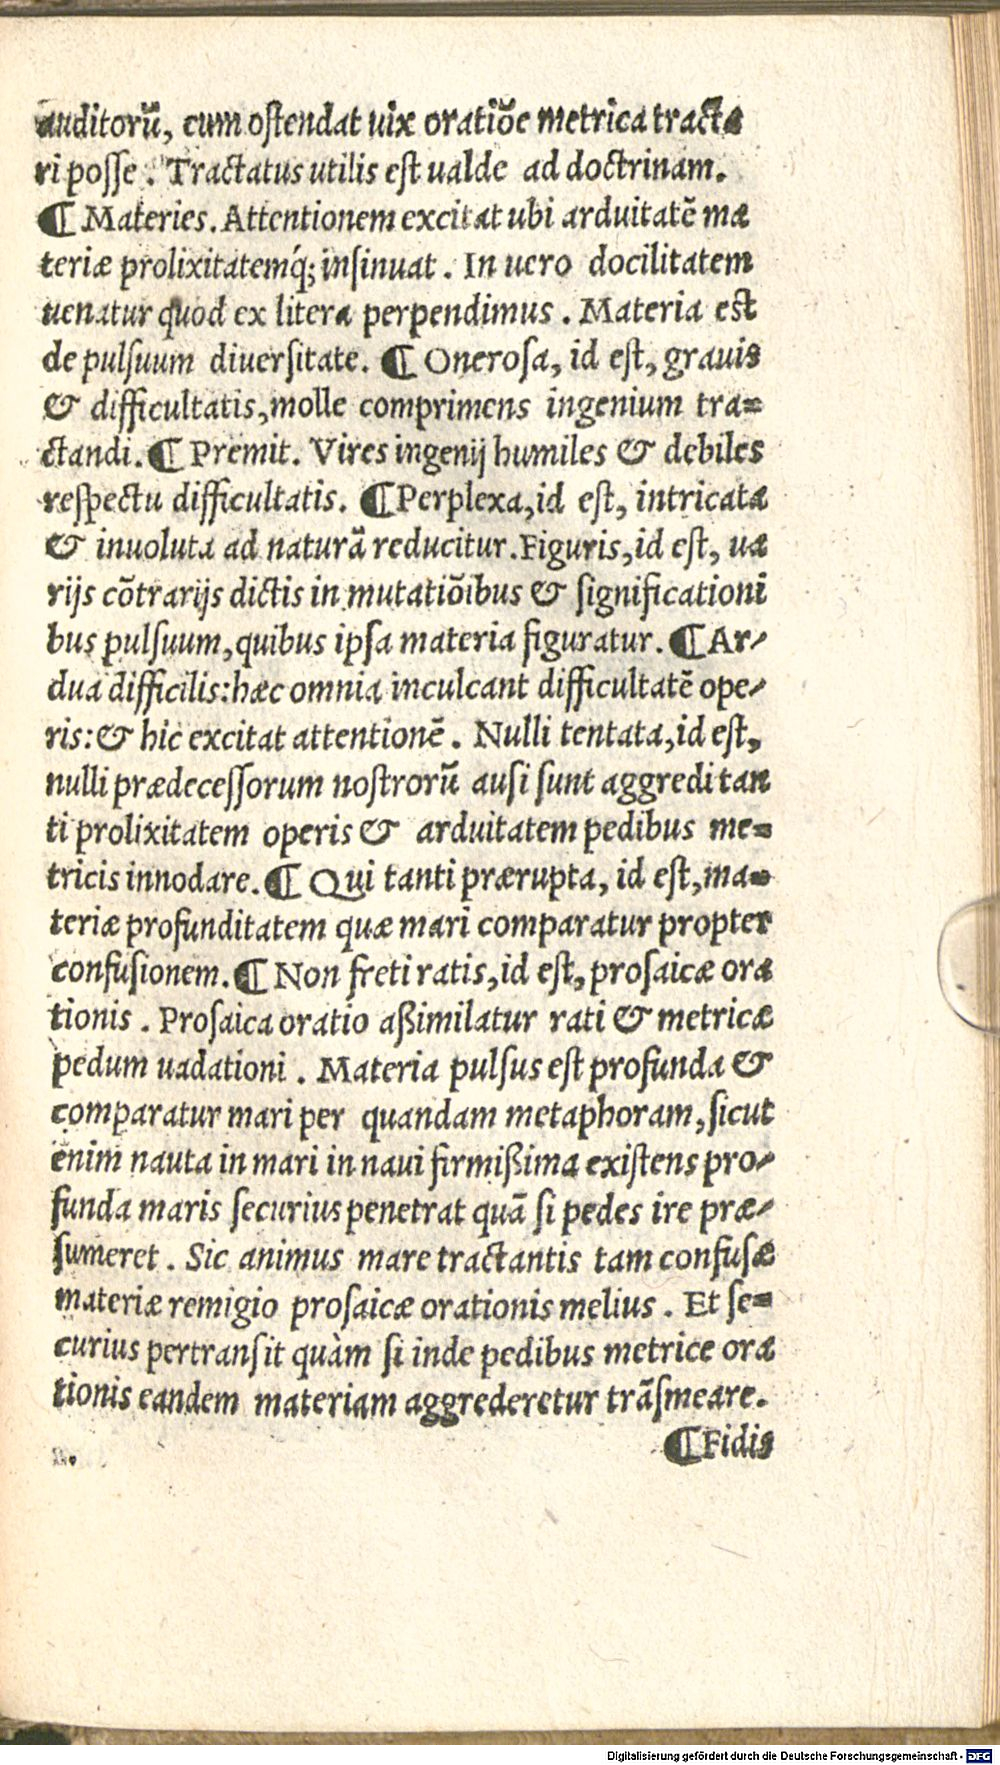 auditorũ, cum ostendat uix oratiõe metrica tracta
ri posse. Tractatus utilis est ualde ad doctrinam.
¶ Materies. Attentionem excitat ubi arduitatẽ ma
teriæ prolixitatemq́; insinuat. In uero docilitatem
uenatur quod ex litera perpendimus. Materia est
de pulsuum diuersitate. ¶ Onerosa, id est, grauis
& difficultatis, molle comprimens ingenium tra=
ctandi. ¶ Premit. Vires ingenij humiles & debiles
respectu difficultatis. ¶ Perplexa, id est, intricata
& inuoluta ad naturã reducitur. Figuris, id est, ua
rijs cõtrarijs dictis in mutatiõibus & significationi
bus pulsuum, quibus ipsa materia figuratur. ¶ Ar-
dua difficilis: hæc omnia inculcant difficultatẽ ope-
ris: & hic excitat attentionẽ. Nulli tentata, id est,
nulli prædecessorum nostrorũ ausi sunt aggredi tan
ti prolixitatem operis & arduitatem pedibus me=
tricis innodare. ¶ Qui tanti prærupta, id est, ma=
teriæ profunditatem quæ mari comparatur propter
confusionem. ¶ Non freti ratis, id est, prosaicæ ora
tionis. Prosaica oratio aßimilatur rati & metricæ
pedum uadationi. Materia pulsus est profunda &
comparatur mari per quandam metaphoram, sicut
enim nauta in mari in naui firmißima existens pro-
funda maris securius penetrat quã si pedes ire præ-
sumeret. Sic animus mare tractantis tam confusæ
materiæ remigio prosaicæ orationis melius. Et se=
curius pertransit quàm si inde pedibus metrice ora
tionis eandem materiam aggrederetur trãsmeare.
¶ Fidis
Digitalisierung gefördert durch die Deutsche Forschungsgemeinschaft - DFG